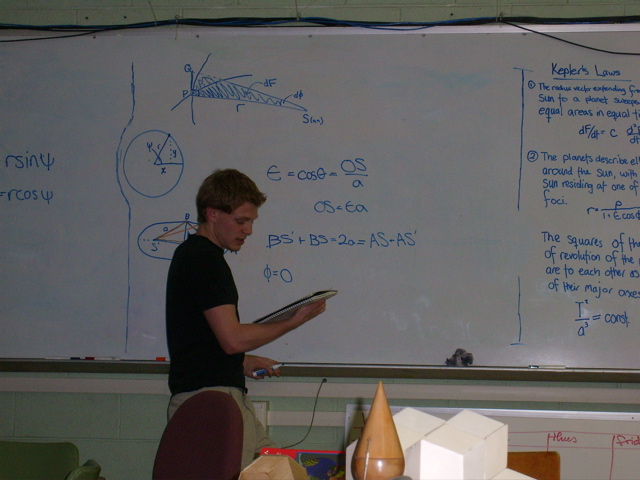 rsinψ
=rcosψ
Q
P
dF
dφ
r
S(sun)
ψ
r
y
x
B
a
S'
ϵ = cosθ = OS/a
OS = ϵa
BS' + BS = 2a = AS - AS'
ϕ = 0
Kepler's Laws
① The radius vector extending
Sun to a planet
equal areas in equal
dF/dt = C
② The planets describe
around the Sun, with
Sun residing at one of
foci.
r = P/1+ϵcos
The squares of the
of revolution of the
are to each other as
of their major axes
T²/a³ = const
thus